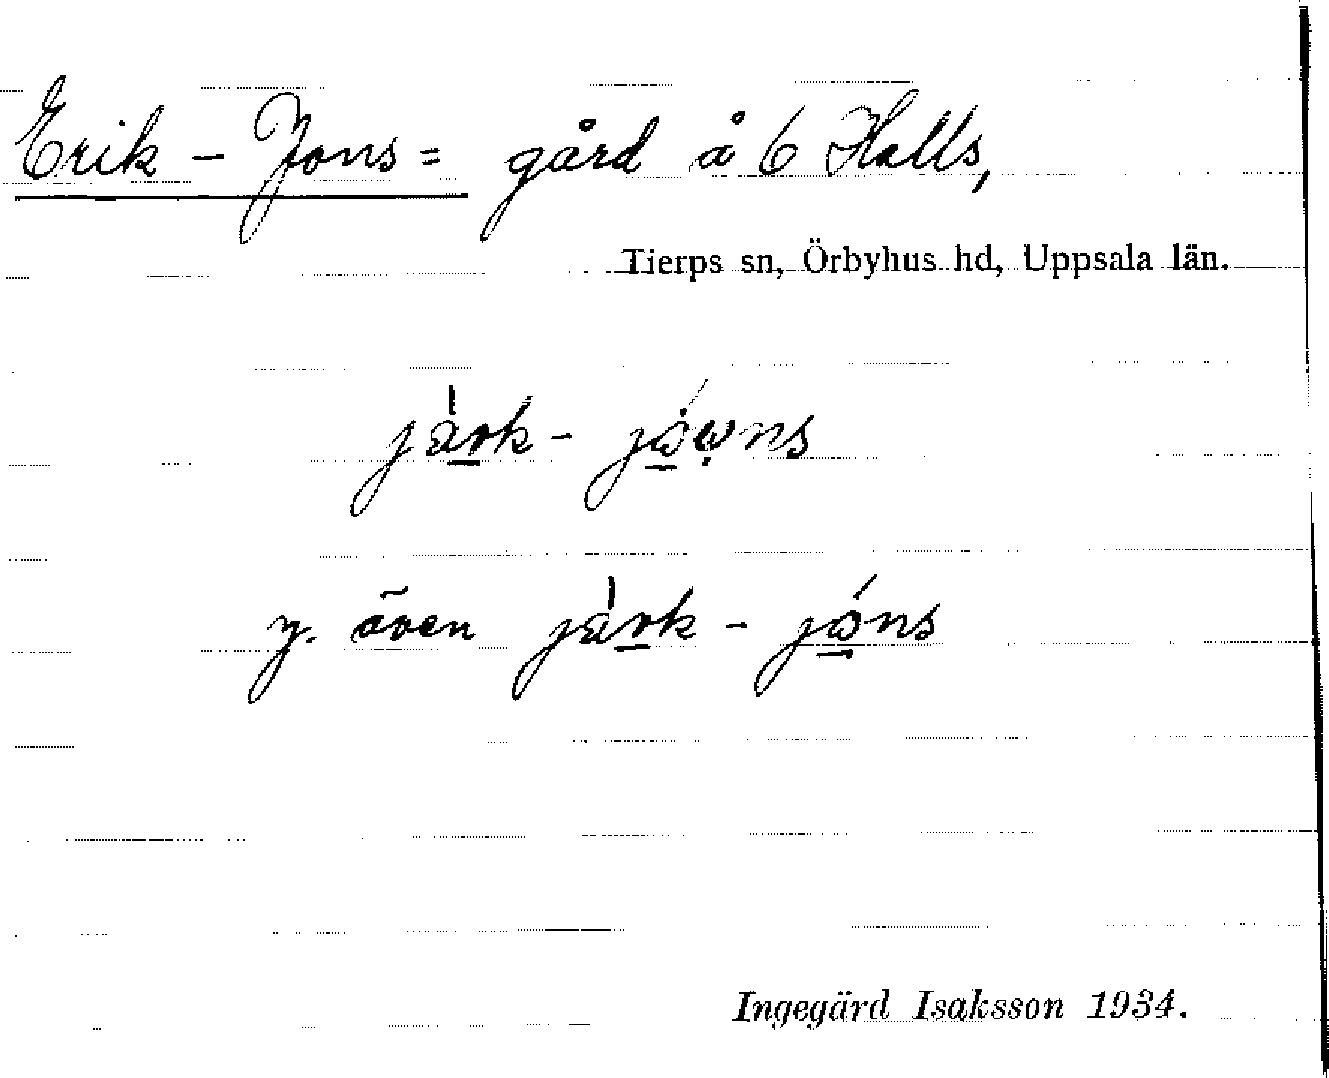 Erik-Jons= gård å 6 Halls,
Tierps sn, Örbyhus hd, Uppsala län.
järk- jωω̣ns
y. även järk- jωns
Ingegärd Isaksson 1934.